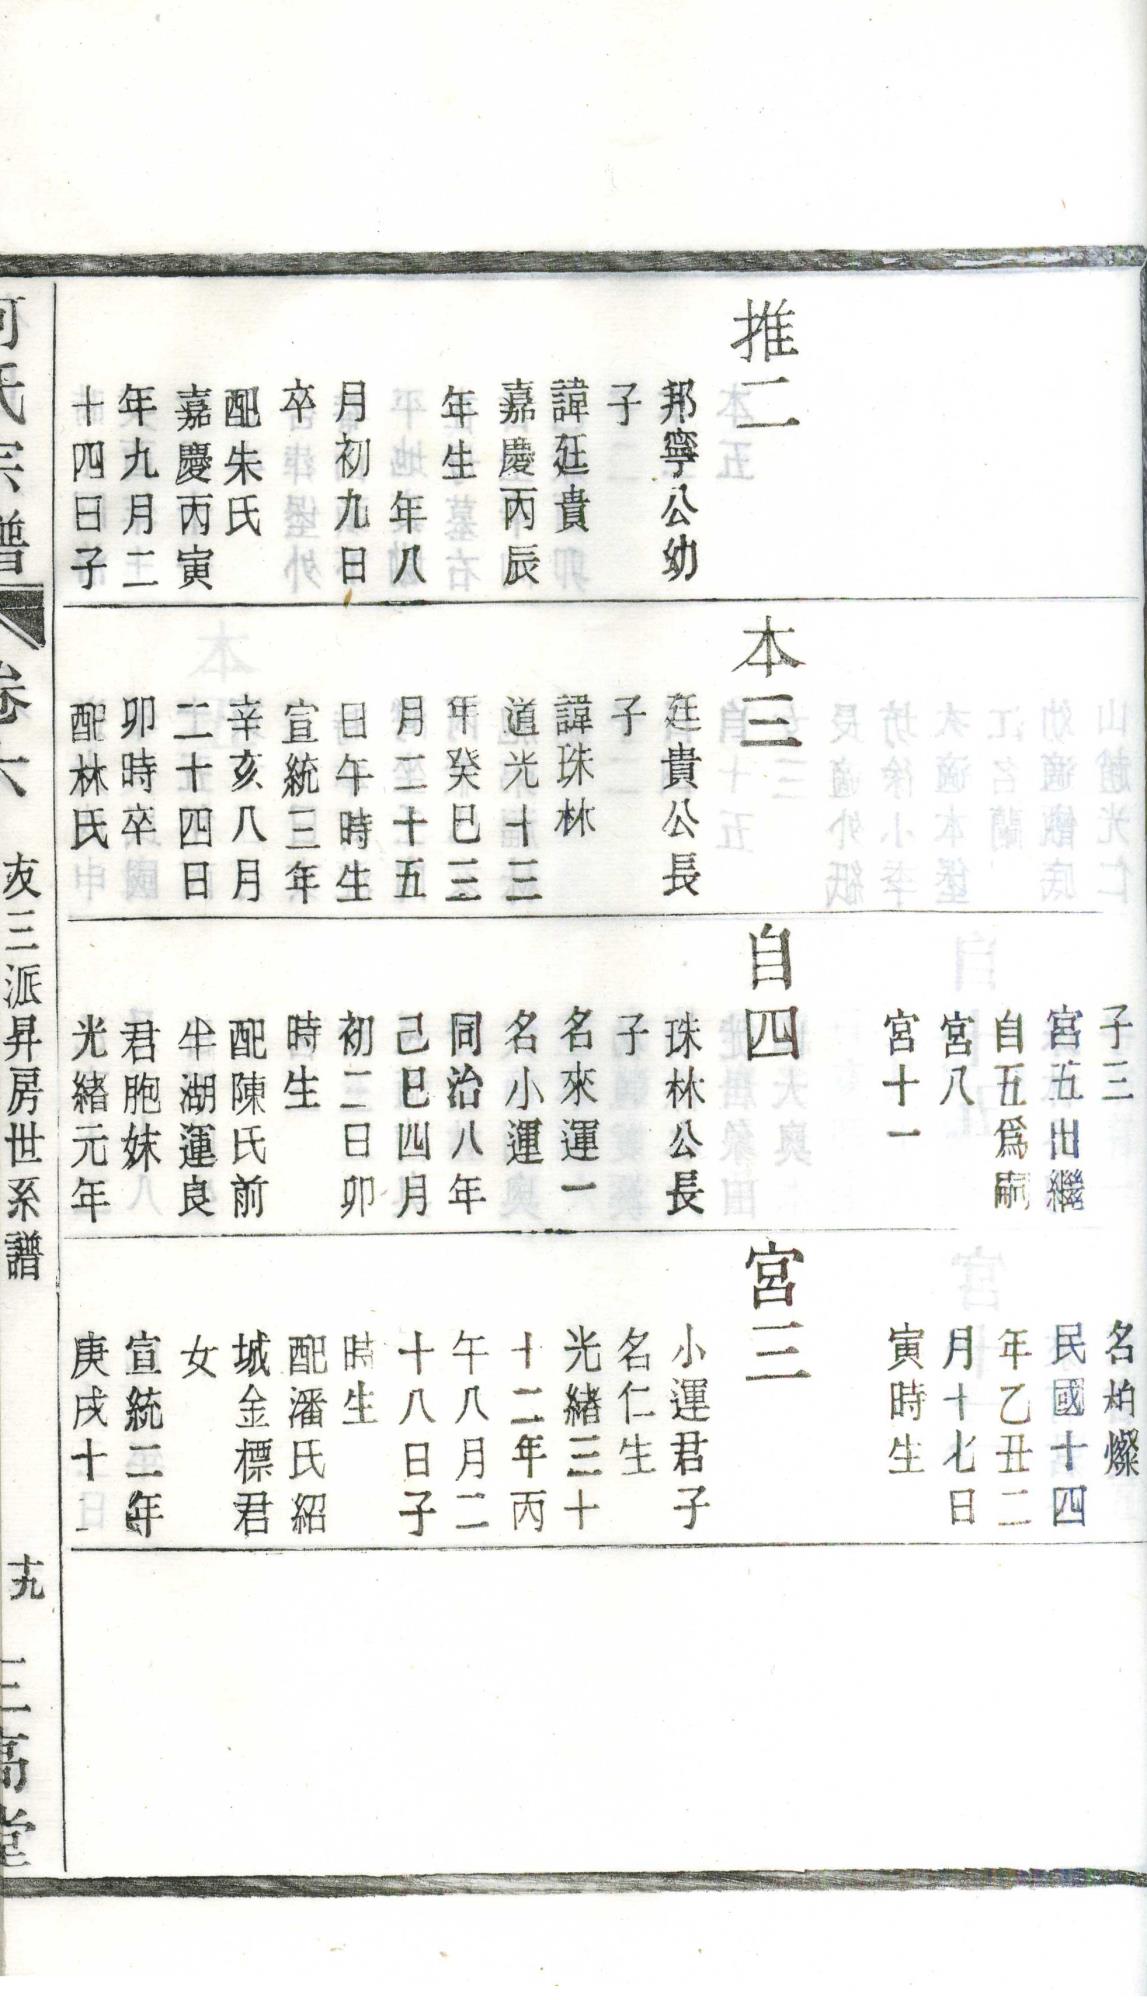 子三
宮五出繼
自五爲嗣
宮八
宮十一
名柏燦
民國十四
年乙丑二
月十七日
寅時生
推二
邦寧公幼
子
諱廷貴
嘉慶丙辰
年生
年八
月初九日
卒
配朱氏
嘉慶丙寅
年九月二
十四日子
本三
廷貴公長
子
諱珠林
道光十三
年癸巳三
月二十五
日午時生
宣統三年
辛亥八月
二十四日
卯時卒
配林氏
自四
珠林公長
子
名來運一
名小運
同治八年
己巳四月
初二日卯
時生
配陳氏前
牛湖運良
君胞妹
光緒元年
宮三
小運君子
名仁生
光緒三十
十二年丙
午八月二
十八日子
時生
配潘氏紹
城金標君
女
宣統二年
庚戌十
氏宗譜
卷六
友三派昇房世系譜
十九
三高堂